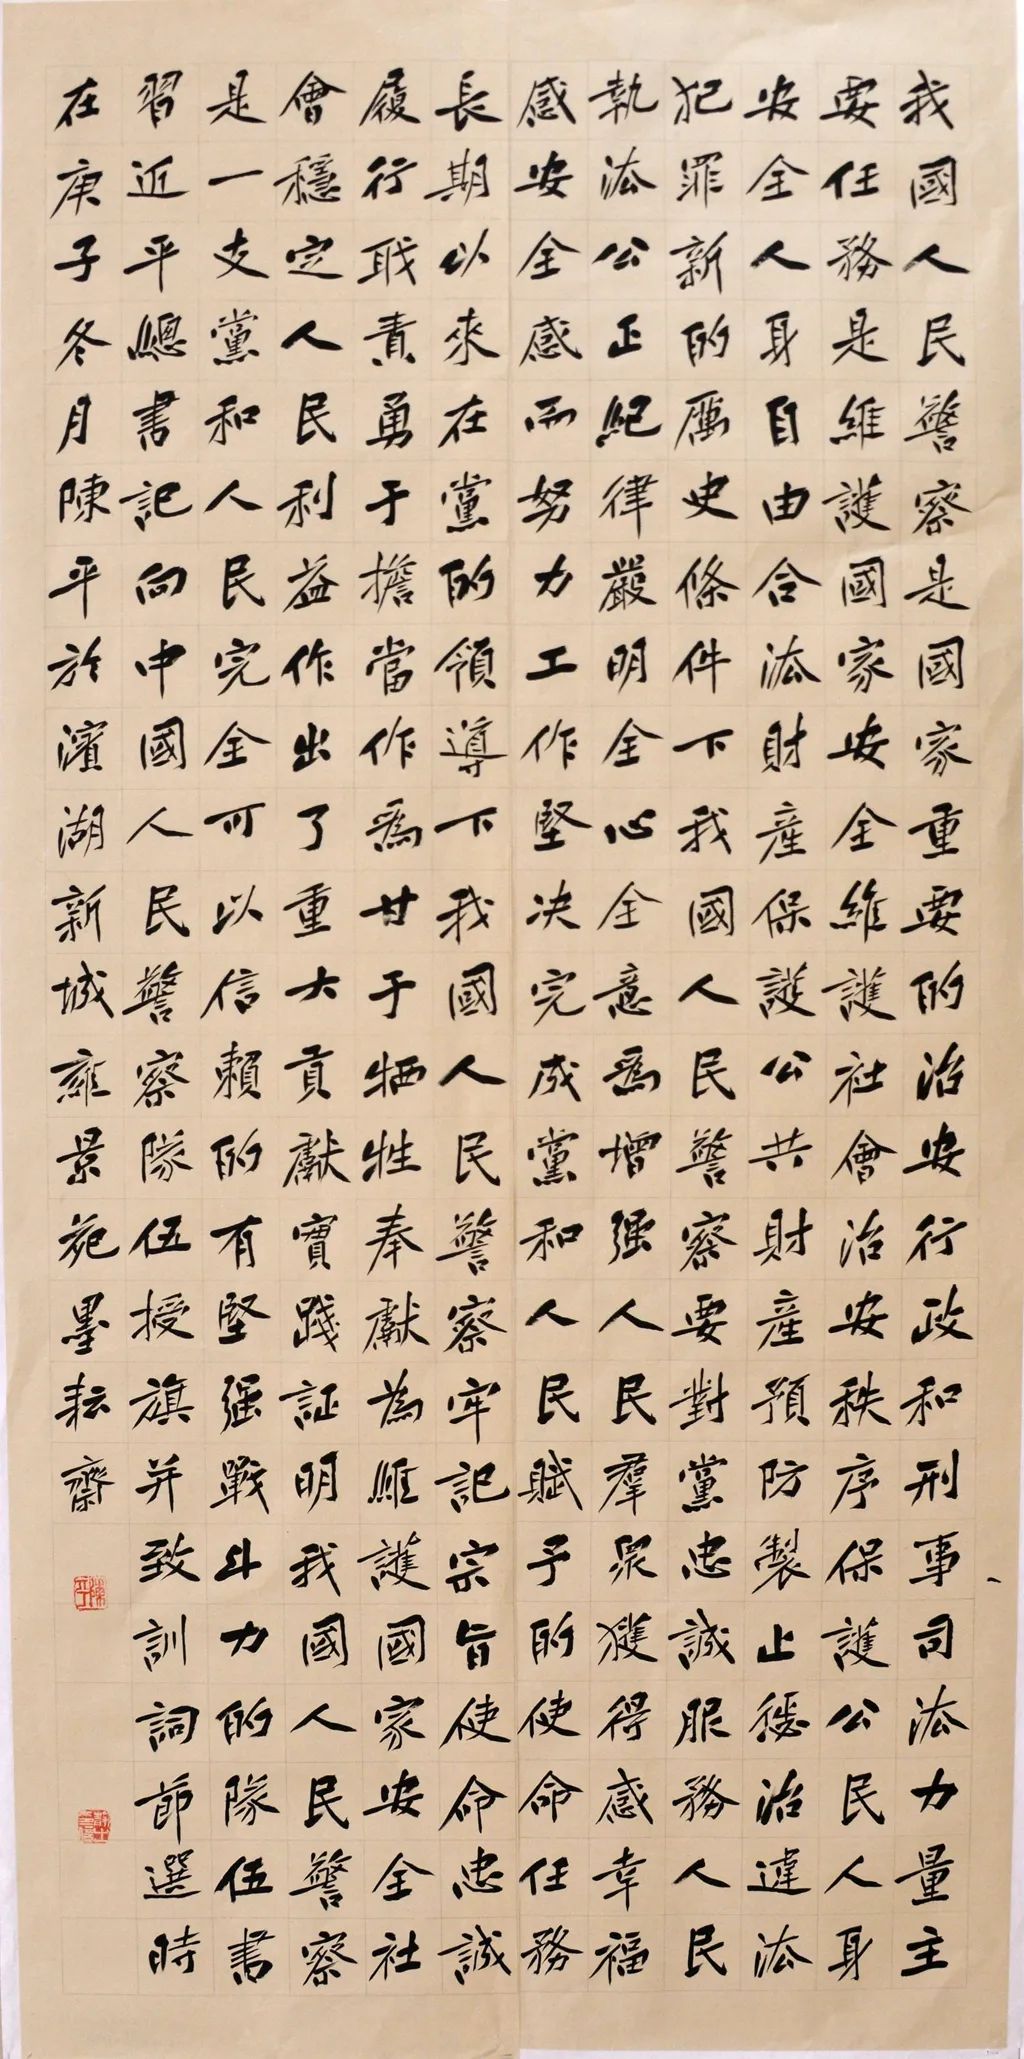 我國人民警察是國家重要的治安行政和刑事司法力量主
要任務是維護國家安全維護社會治安秩序保護公民人身
安全人身自由合法財產保護公共財產預防製止懲治違法
犯罪新的厲史條件下我國人民警察要對黨忠誠服務人民
執法公正紀律嚴明全心全意爲增强人民羣衆獲得感幸福
感安全感而努力工作堅决完成黨和人民賦予的使命任務
長期以來在黨的領導下我國人民警察牢記宗旨使命忠誠
履行職責勇于擔當作爲甘于牺牲奉獻為維護國家安全社
會穩定人民利益作出了重大貢獻實踐証明我國人民警察
是一支黨和人民完全可以信賴的有堅强戰斗力的隊伍書
習近平總書記向中國人民警察隊伍授旗并致訓詞節選時
在庚子冬月陳平於濱湖新城雍景苑墨耘齋
陳平